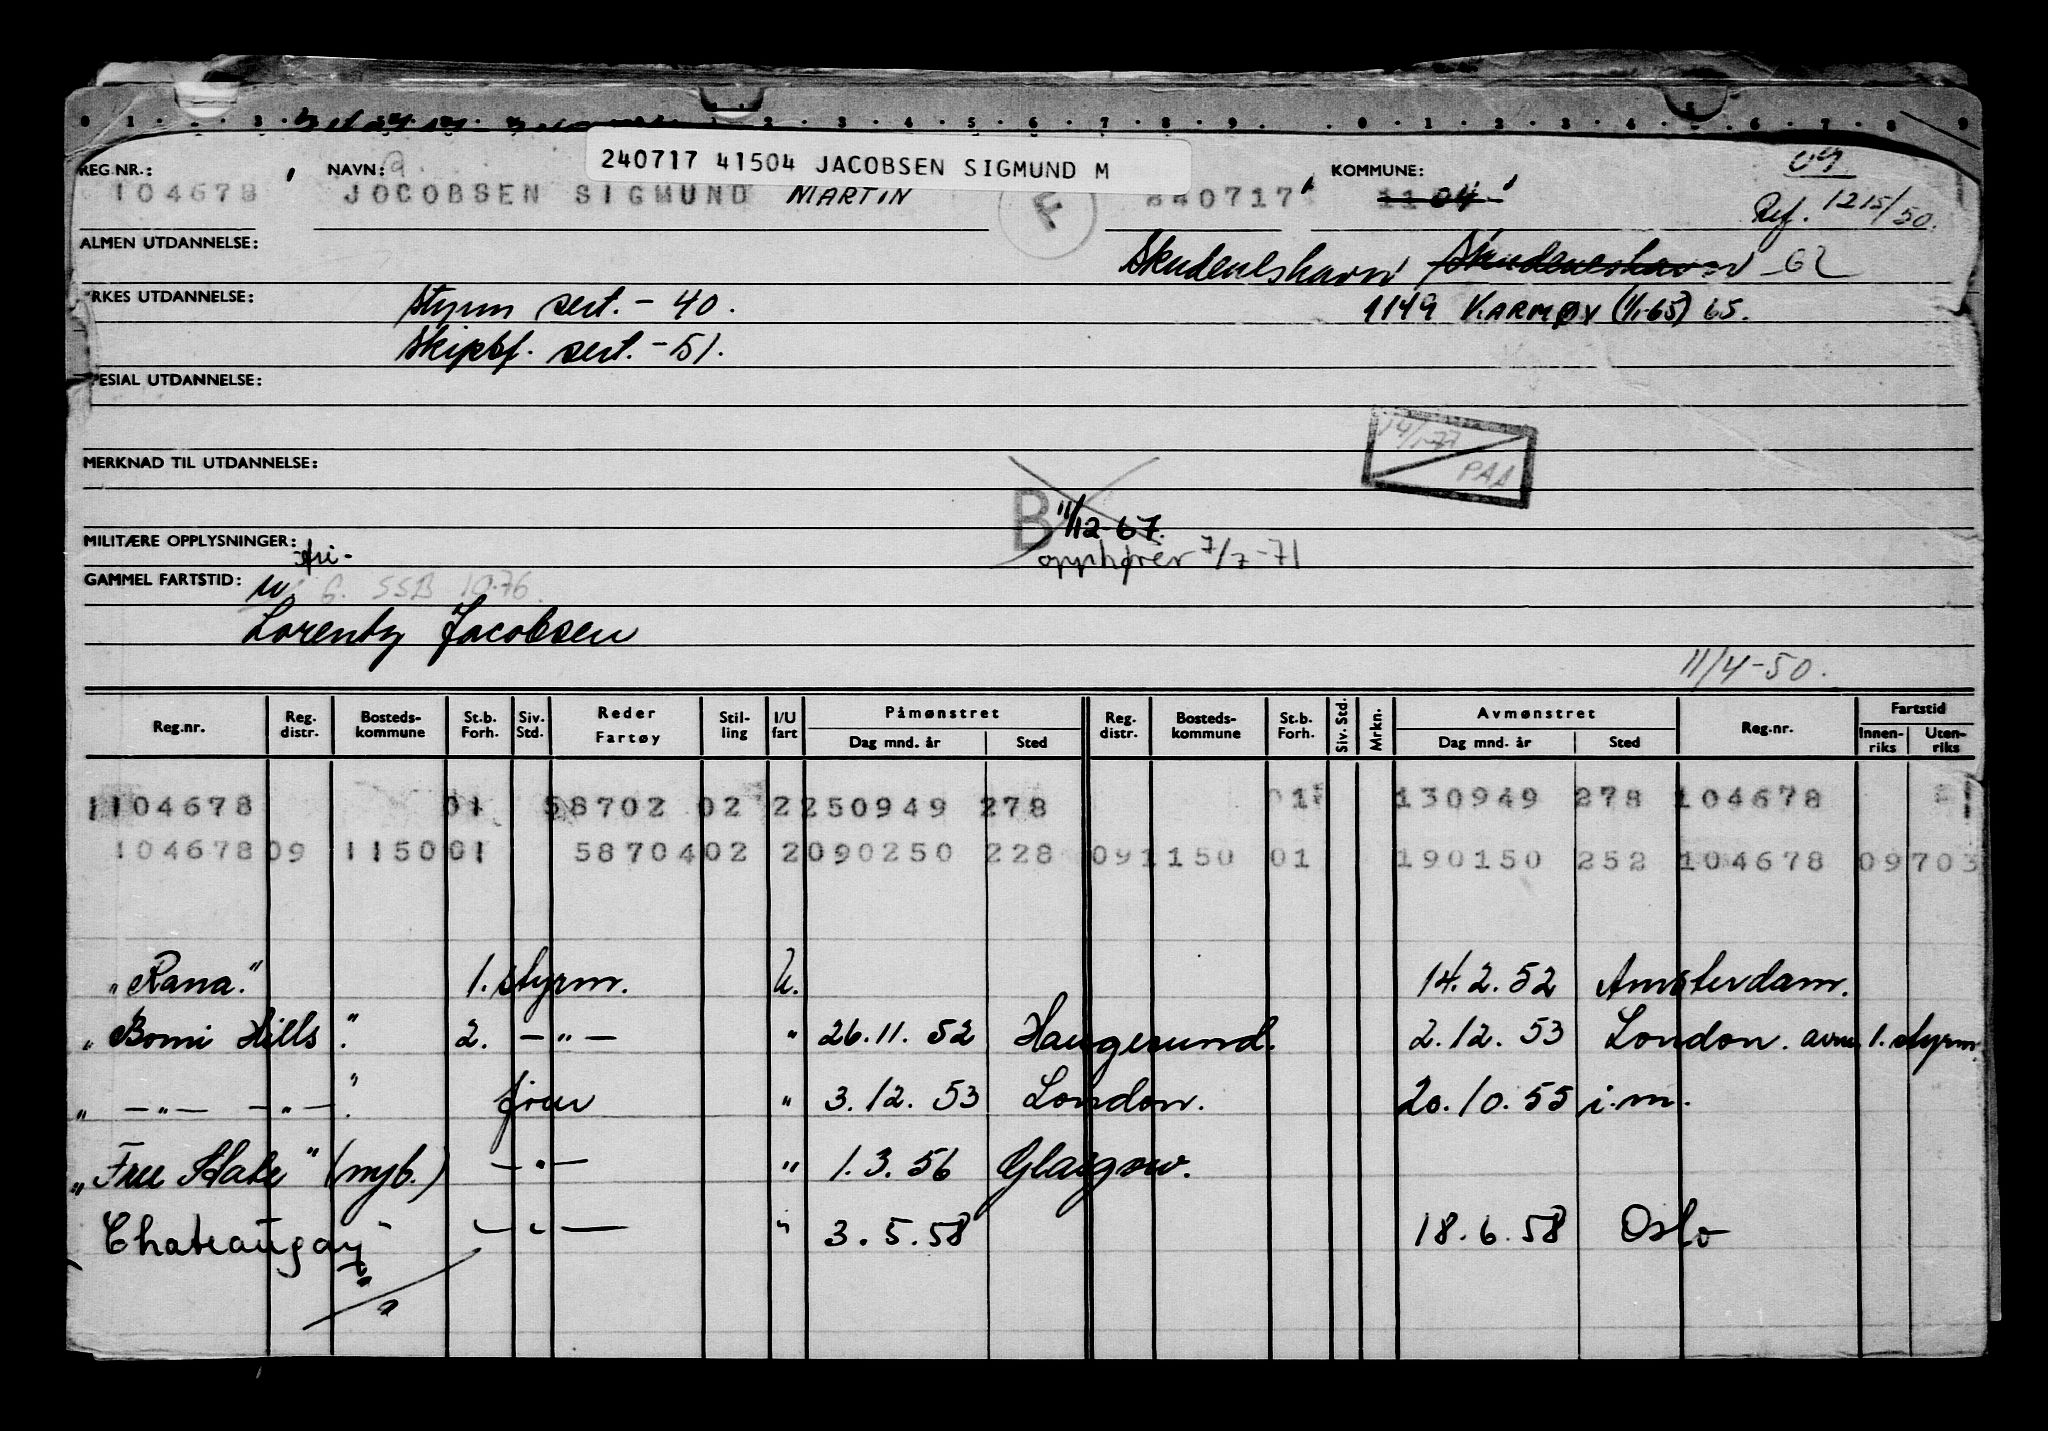 240717 41504 JACOBSEN SIGMUND M
REG.NR.: NAVN: KOMMUNE: 09
104678 JOCOBSEN SIGMUND MARTIN F 240717 1104 Ref. 1215/50.
ALMEN UTDANNELSE: Skudeneshavn Skudeneshavn -62
RKES UTDANNELSE: Styrm sert. - 40. 1149 KARMØY (1/1-65) 65.
Skipsf. sert. - 51.
ESIAL UTDANNELSE:
14/1-77
PAA
MERKNAD TIL UTDANNELSE:
B 11/12-67.
MILITÆRE OPPLYSNINGER: opphører 7/7-71
GAMMEL FARTSTID: G. SSB 10.76.
Lorentz Jacobsen
11/4-50.
Reg.nr. Reg. distr. Bosteds-kommune St.b. Forh. Siv. Std. Reder Fartøy Stil-ling I/U fart Påmønstret Dag mnd. år Sted Reg. distr. Bosteds-kommune St.b. Forh. Siv. Std. Mrkn. Avmønstret Dag mnd. år Sted Reg.nr. Fartstid Innen-riks Uten-riks
1104678 01 58702 02 2250949 278 01 130949 278 104678
104678 09 1150 01 58704 02 2090250 228 09 1150 01 190150 252 104678 09703
"Rana." 1. styrm. U. 14.2.52 Amsterdam.
"Bomi Hills". 2. -"- " 26.11.52 Haugesund. 2.12.53 London. avm. 1. styrm.
" -"- -"-". fører " 3.12.53 London. 20.10.55 i.m.
"Free State" (nyb.) -"- " 1.3.56 Glasgow.
Chateaugay" -"- " 3.5.58 18.6.58 Oslo